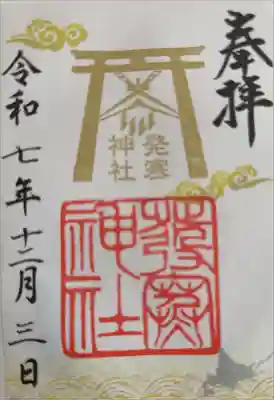 奉拝
発寒
神社
發寒
神社
令和七年十二月三日